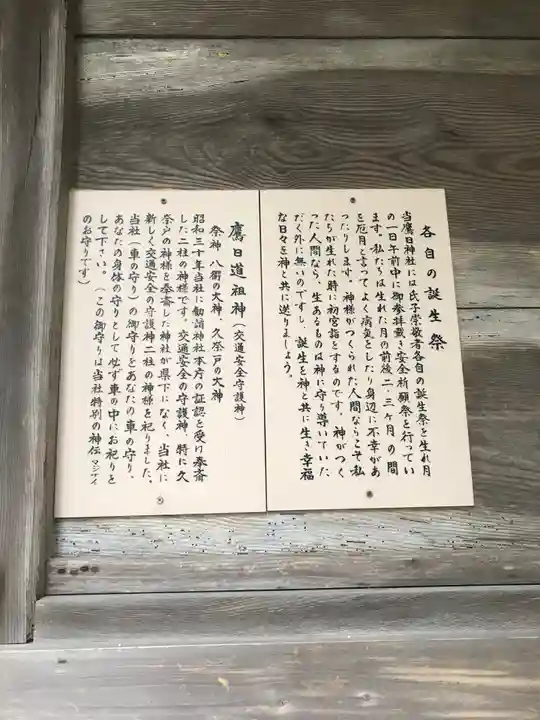 各自の誕生祭
当鷹日神社には氏子崇敬者各自の誕生祭を生れ月
の一日午前中に御参拝戴き安全祈願祭を行ってい
ます。私たちは生れた月の前後二、三ヶ月の間
を厄月と言ってよく病気をしたり身辺に不幸があ
ったりします。神様がつくられた人間ならこそ私
たちが生れた時に初宮詣をするのです。神がつく
った人間なら、生あるものは神に守り導いていた
だく外に無いのですし、誕生を神と共に生き幸福
な日々を神と共に送りましょう。
鷹日道祖神(交通安全守護神)
祭神 八衢の大神、久奈戸の大神
昭和三十年当社に勧請神社本庁の証認を受け奉斎
した二柱の神様です。交通安全の守護神、特に久
奈戸の神様を奉斎した神社が県下になく、当社に
新しく交通安全の守護神二柱の神様を祀りました、
当社(車の守り)の御守りをあなたの車の守り、
あなたの身体の守りとして必ず車の中にお祀りと
して下さい。(この御守りは当社特別の神伝マジナイ
のお守りです)